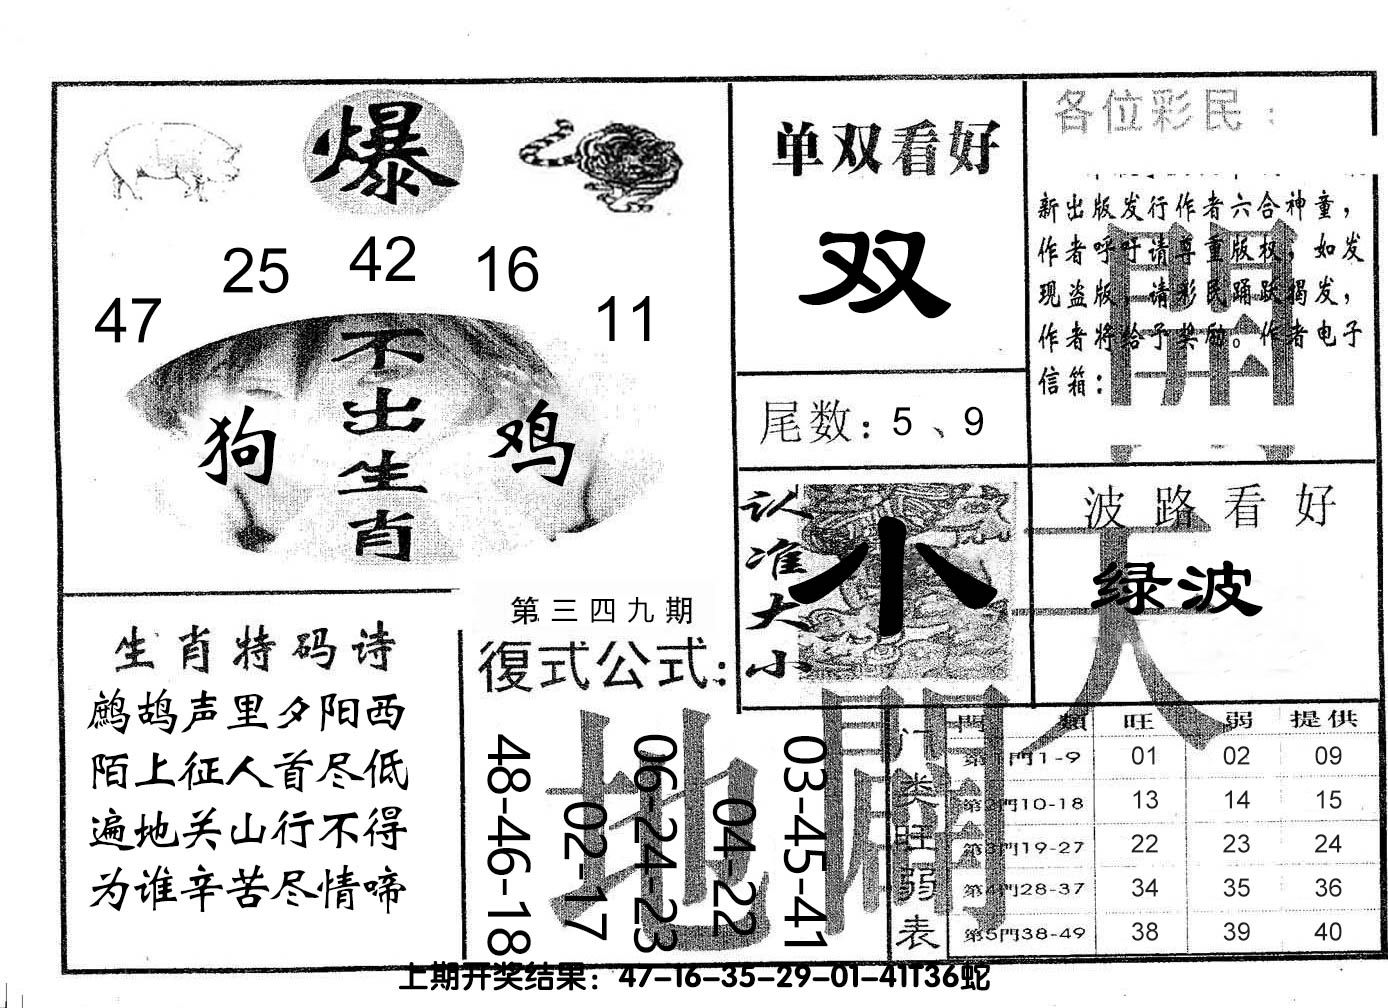 爆
47 25 42 16 11
不出生肖
狗 鸡
生肖特码诗
鹧鸪声里夕阳西
陌上征人首尽低
遍地关山行不得
为谁辛苦尽情啼
第三四九期
復式公式：
48-46-18
02-17
06-24-23
04-22
03-45-41
单双看好
双
尾数：5、9
认准大小
小
各位彩民：
新出版发行作者六合神童，
作者呼吁请尊重版权，如发
现盗版，请彩民踊跃揭发，
作者将给予奖励。作者电子
信箱：
波路看好
绿波
天
地
開
门类旺弱表
門類 旺 弱 提供
第1門1-9 01 02 09
第2門10-18 13 14 15
第3門19-27 22 23 24
第4門28-37 34 35 36
第5門38-49 38 39 40
上期开奖结果：47-16-35-29-01-41T36蛇